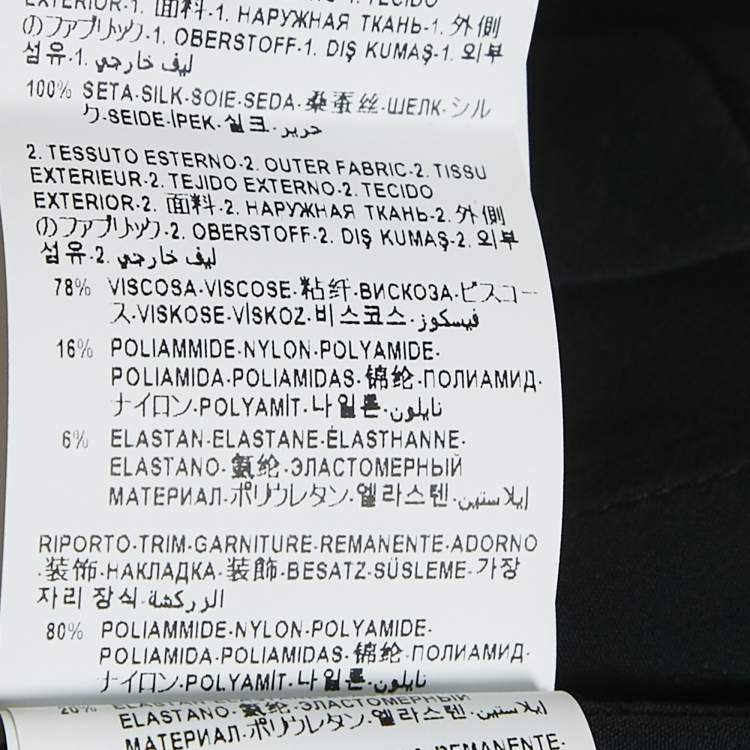 EXTERIOR-1. 面料-1. НАРУЖНАЯ ТКАНЬ-1. 外側
のファブリック-1. OBERSTOFF-1. DIŞ KUMAŞ-1. 외부
섬유-1. ليف خارجي
100% SETA-SILK-SOIE-SEDA-桑蚕丝-ШЕЛК-シル
ク-SEIDE-İPEK-실크-حرير
2. TESSUTO ESTERNO-2. OUTER FABRIC-2. TISSU
EXTERIEUR-2. TEJIDO EXTERNO-2. TECIDO
EXTERIOR-2. 面料-2. НАРУЖНАЯ ТКАНЬ-2. 外側
のファブリック-2. OBERSTOFF-2. DIŞ KUMAŞ-2. 외부
섬유-2. ليف خارجي
78% VISCOSA-VISCOSE-粘纤-ВИСКОЗА-ビスコー
ス-VISKOSE-VİSKOZ-비스코스-فيسكوز
16% POLIAMMIDE-NYLON-POLYAMIDE-
POLIAMIDA-POLIAMIDAS-锦纶-ПОЛИАМИД-
ナイロン-POLYAMİT-나일론-نايلون
6% ELASTAN-ELASTANE-ÉLASTHANNE-
ELASTANO-氨纶-ЭЛАСТОМЕРНЫЙ
МАТЕРИАЛ-ポリウレタン-엘라스텐-إيلاستين
RIPORTO-TRIM-GARNITURE-REMANENTE-ADORNO
-装饰-НАКЛАДКА-装飾-BESATZ-SÜSLEME-가장
자리 장식-الزركشة
80% POLIAMMIDE-NYLON-POLYAMIDE-
POLIAMIDA-POLIAMIDAS-锦纶-ПОЛИАМИД-
ナイロン-POLYAMİT-나일론-نايلون
20%
ELASTANO-氨纶-ЭЛАСТОМЕРНЫЙ
МАТЕРИАЛ-ポリウレタン-엘라스텐-إيلاستين